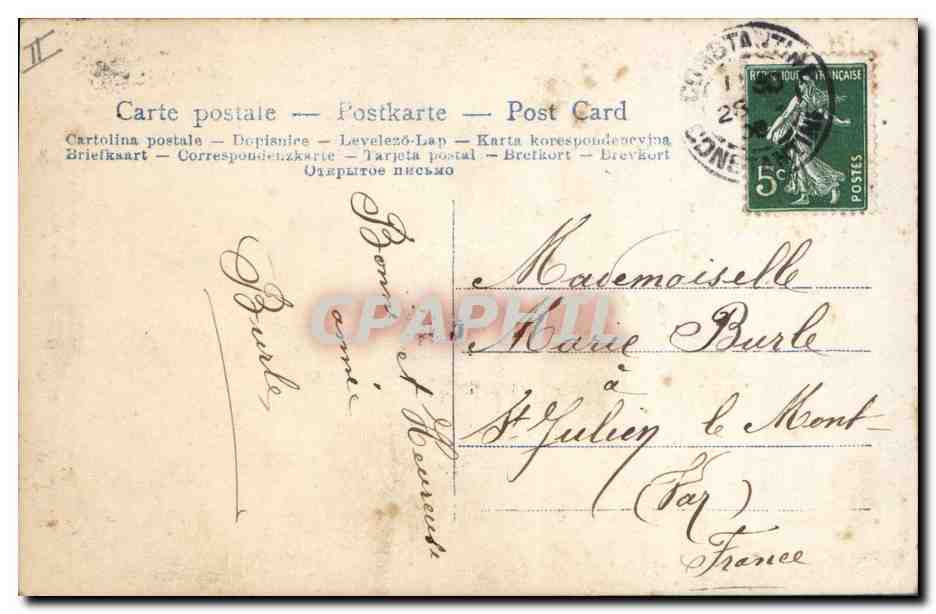 II
Carte postale — Postkarte — Post Card
Cartolina postale — Dopisnice — Levelező-Lap — Karta korespondencyjna
Briefkaart — Correspondenzkarte — Tarjeta postal — Brefkort — Brevkort
Открытое письмо
CONSTANTINE
CONSTANTINE
RÉPUBLIQUE FRANÇAISE
5c
POSTES
Bonne et Heureuse
année
Burle
Mademoiselle
Marie Burle
à
St Julien le Mont-
(Var)
France
CPAPHIL